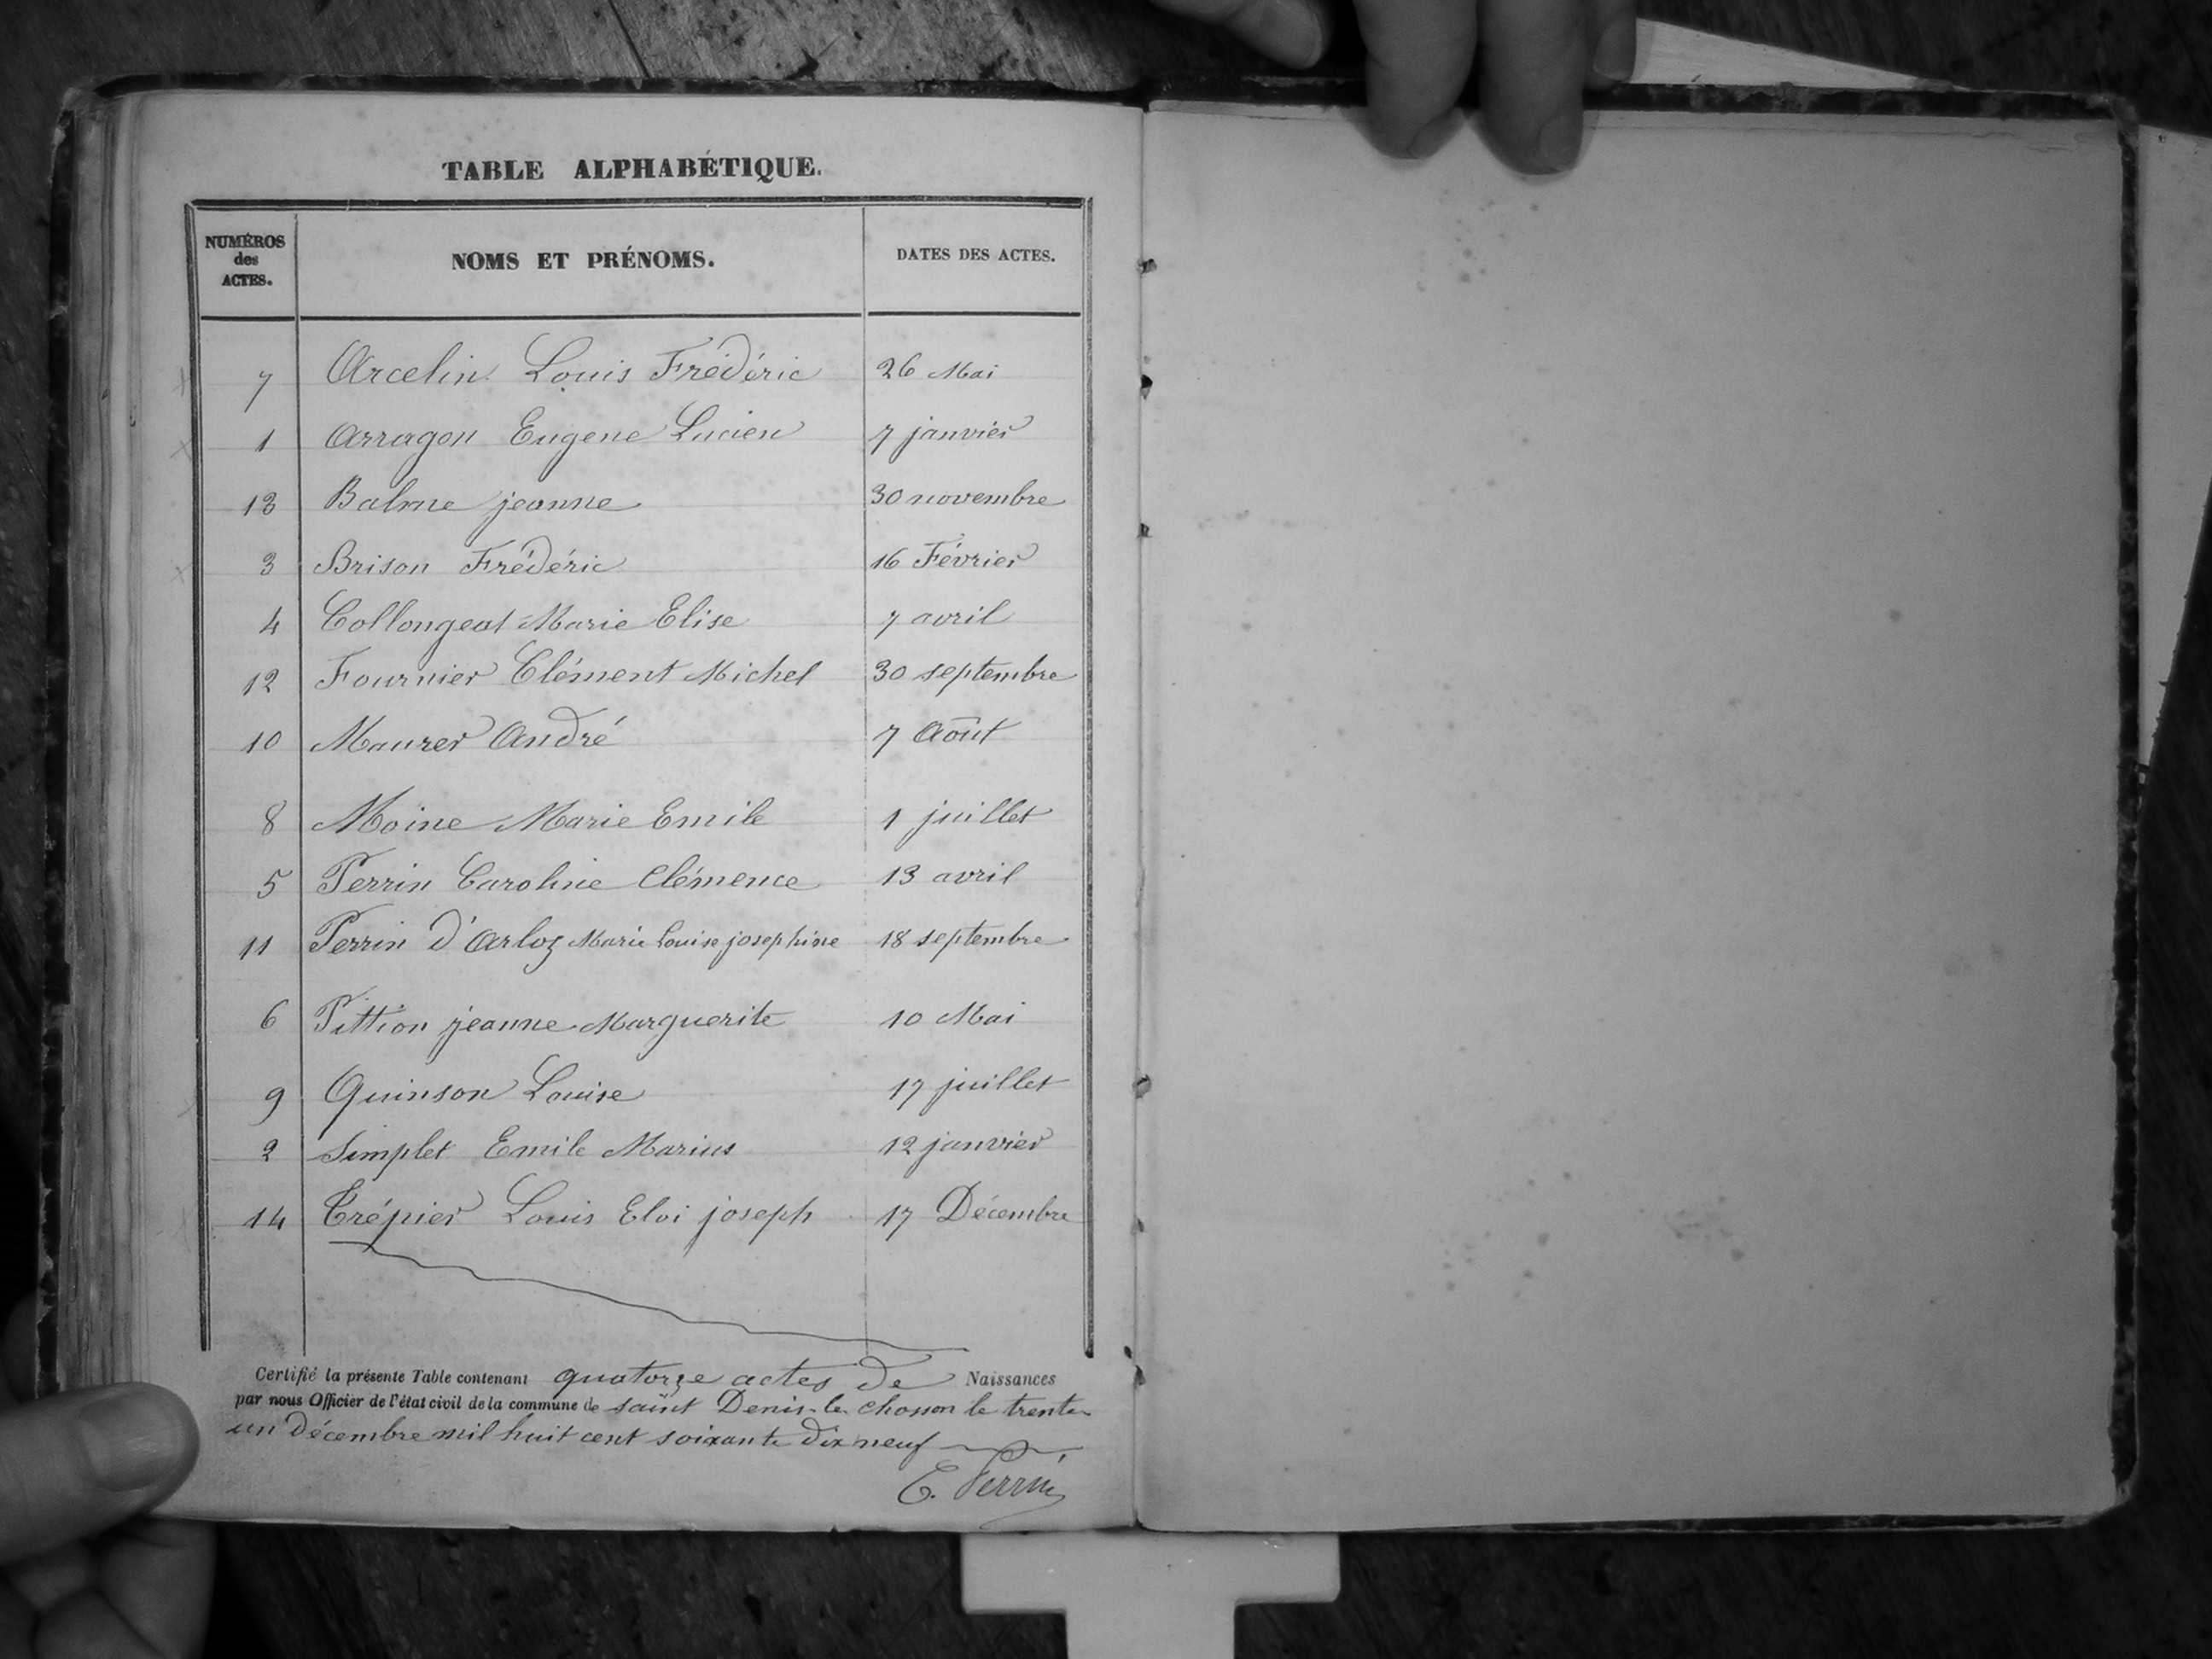 TABLE ALPHABÉTIQUE.
NUMÉROS des ACTES. NOMS ET PRÉNOMS. DATES DES ACTES.
7 Arcelin Louis Frédéric 26 Mai
1 Arragon Eugene Lucien 7 janvier
13 Balme jeanne 30 novembre
3 Brison Frédéric 16 Février
4 Collongeat Marie Elise 7 avril
12 Fournier Clément Michel 30 septembre
10 Maurer André 7 Août
8 Moine Marie Emile 1 juillet
5 Perrin Caroline Clémence 13 avril
11 Perrin d'Arloz Marie Louise josephine 18 septembre
6 Pittion jeanne Marguerite 10 Mai
9 Quinson Louise 17 juillet
2 Simplet Emile Marius 12 janvier
14 Trépier Louis Eloi joseph 17 Décembre
Certifié la présente Table contenant quatorze actes de Naissances
par nous Officier de l'état civil de la commune de saint Denis-le-chosson le trente
un Décembre mil huit cent soixante dix neuf
C. Perrin